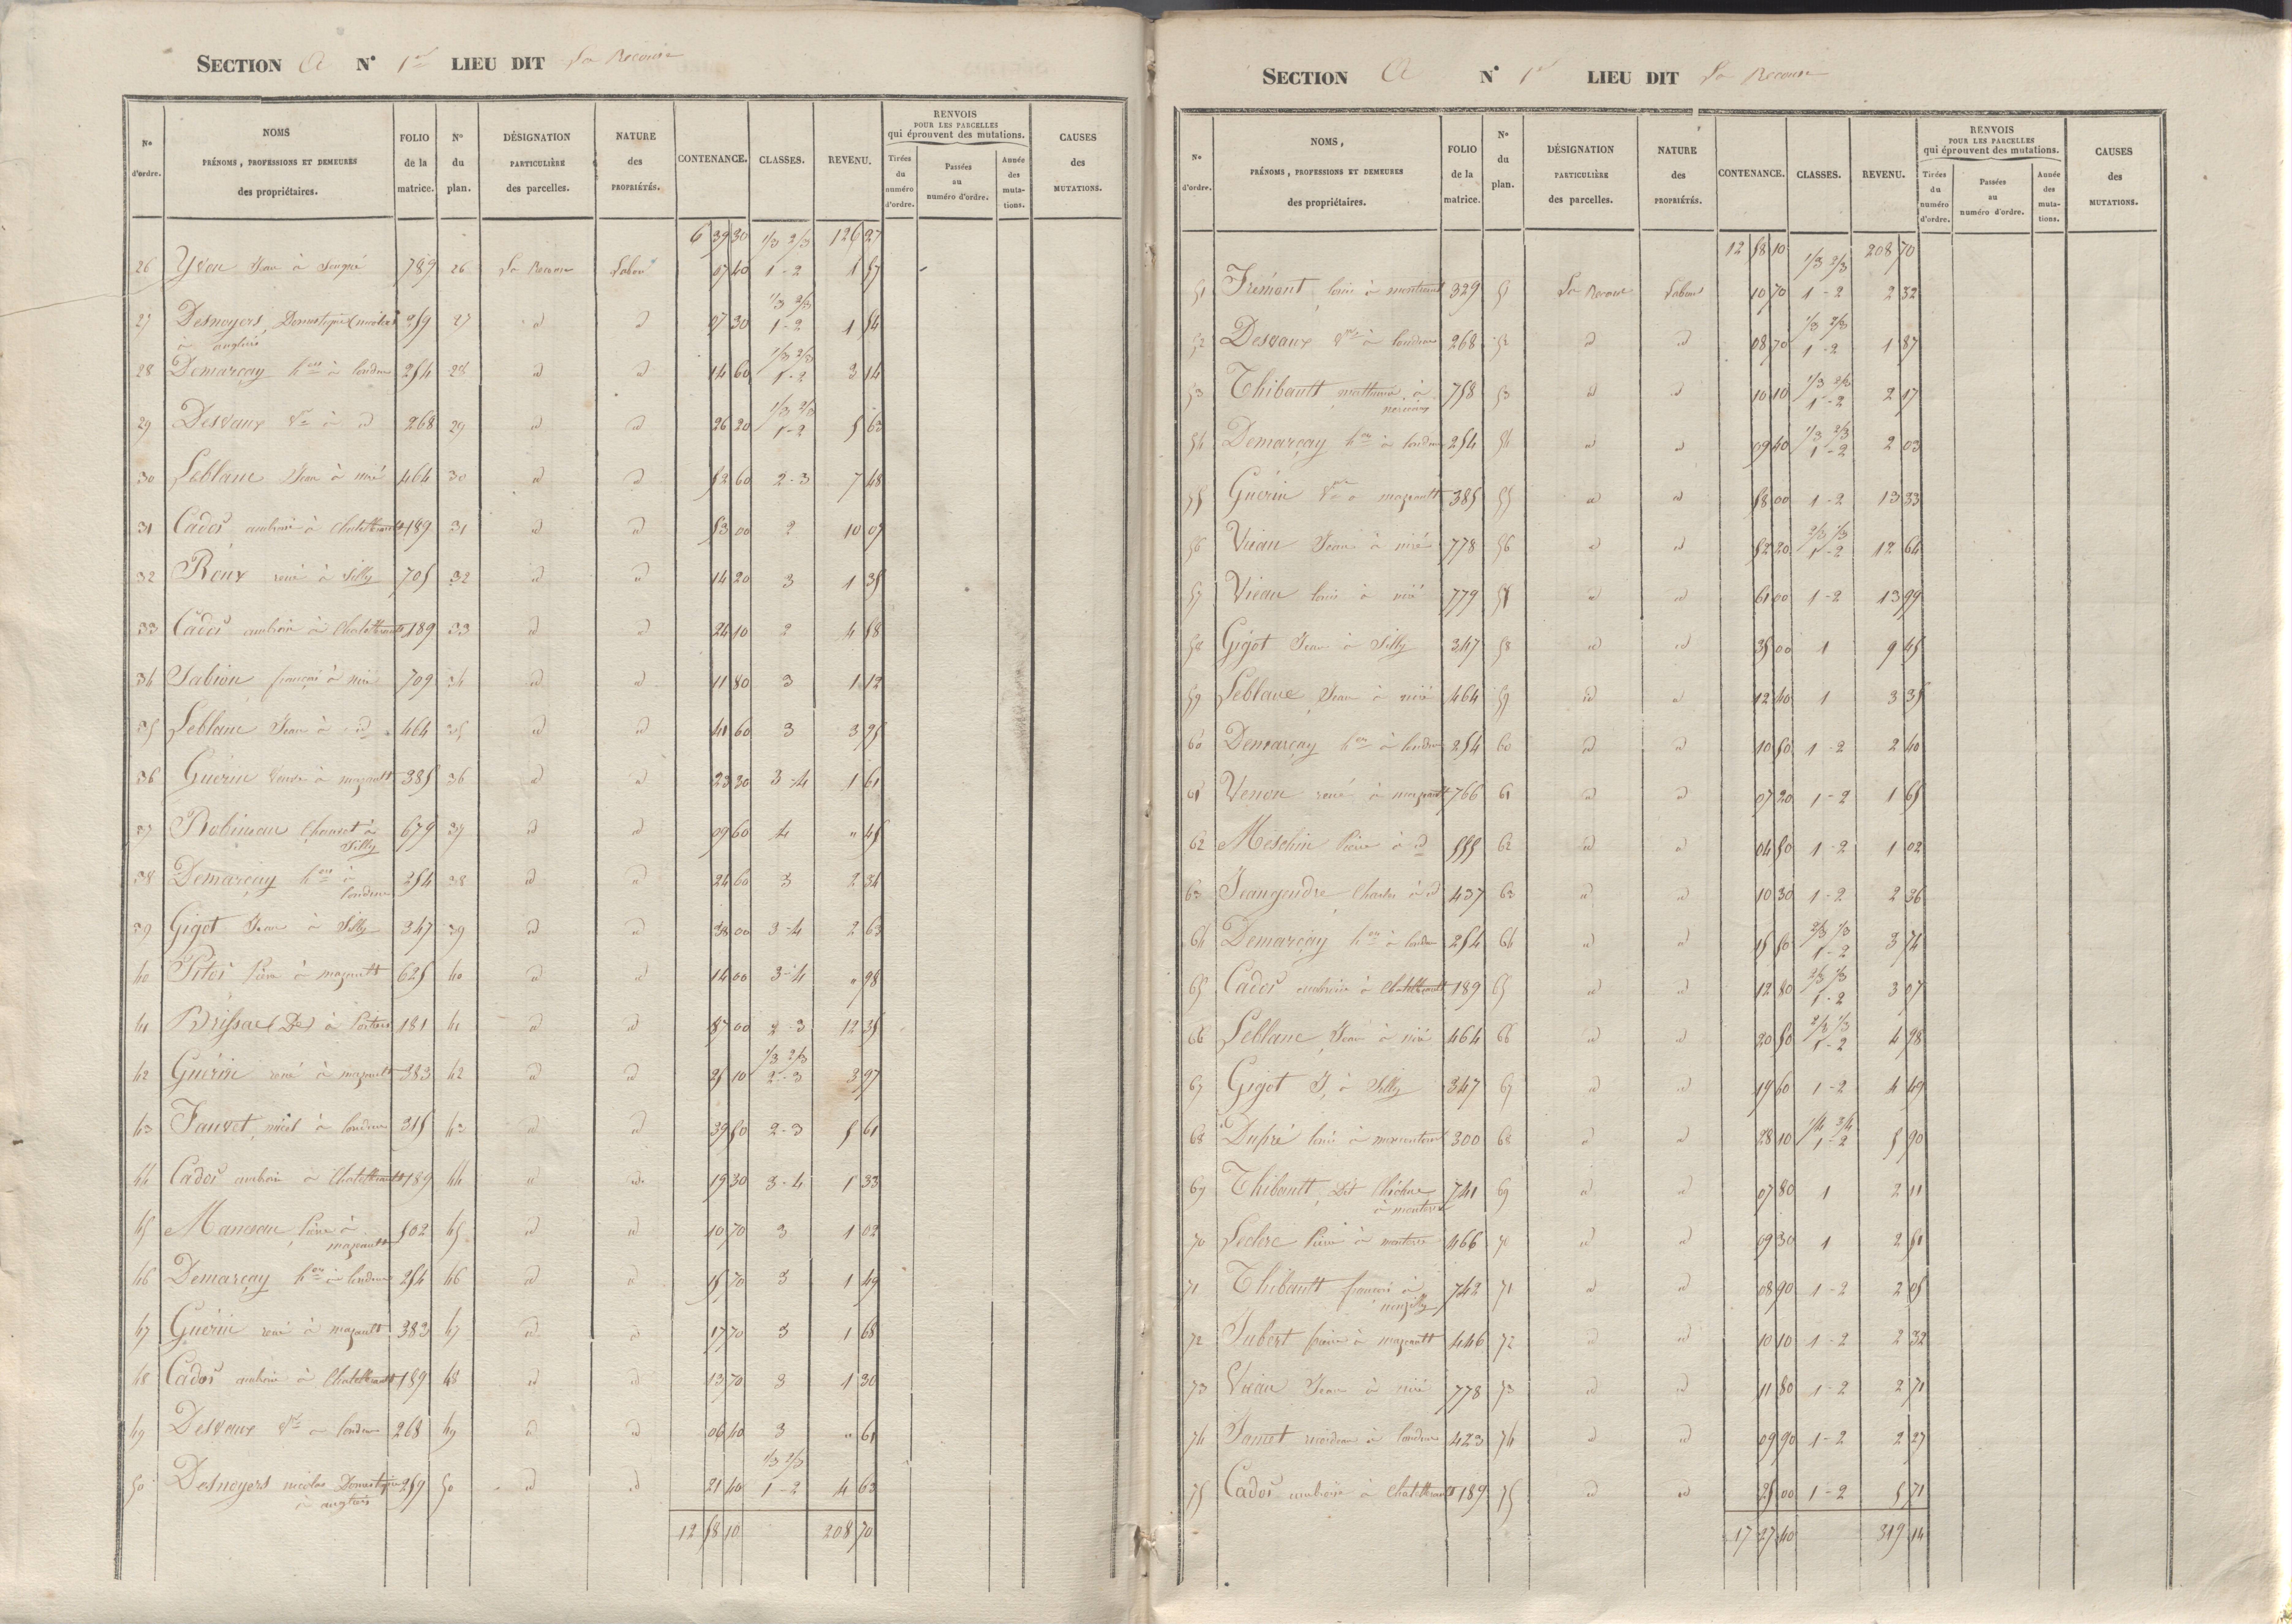 SECTION A N° 1er LIEU DIT La Recouse
N° d'ordre. NOMS PRÉNOMS, PROFESSIONS ET DEMEURES des propriétaires. FOLIO de la matrice. N° du plan. DÉSIGNATION PARTICULIÈRE des parcelles. NATURE des PROPRIÉTÉS. CONTENANCE. CLASSES. REVENU. RENVOIS POUR LES PARCELLES qui éprouvent des mutations. Tirées du numéro d'ordre. Passées au numéro d'ordre. Année des mutations. CAUSES des MUTATIONS.
6 39 30 126 27
26 Yvon Jean à 789 26 Labour 07 40 1/3 2/3 1-2 1 57
27 Desnoyers, Domestique (nicolas) à angliers 259 27 id id 07 30 1/3 2/3 1-2 1 54
28 Demarçay hers à loudun 254 28 id id 14 60 1/3 2/3 1-2 3 14
29 Desvaux Ve à id 268 29 id id 26 20 1/3 2/3 1-2 5 63
30 Leblanc Jean à niré 464 30 id id 52 60 2-3 7 48
31 Cados ambroise à Chatellerault 189 31 id id 53 00 2 10 07
32 Roux rené à Silly 705 32 id id 14 20 3 1 35
33 Cados ambroise à Chatellerault 189 33 id id 24 10 2 4 58
34 Sabion françois à niré 709 34 id id 11 80 3 1 12
35 Leblanc Jean à id 464 35 id id 41 60 3 3 95
36 Guérin Veuve à mazault 385 36 id id 23 30 3-4 1 61
37 Robineau Chauvet à Silly 679 37 id id 09 60 4 " 45
38 Demarçay hers à loudun 254 38 id id 24 60 3 2 34
39 Gigot Jean à Silly 347 39 id id 38 00 3-4 2 63
40 Pitos Pierre à mazault 625 40 id id 14 00 3-4 " 98
41 Brissac (De) à 181 41 id id 87 00 2-3 12 35
42 Guérin rené à mazault 383 42 id id 25 10 1/3 2/3 2-3 3 97
43 Fauvet, à loudun 315 43 id id 39 50 2-3 5 61
44 Cados ambroise à Chatellerault 189 44 id id 19 30 3-4 1 33
45 Manceau, Pierre à mazault 502 45 id id 10 70 3 1 02
46 Demarçay hers à loudun 254 46 id id 15 70 3 1 49
47 Guérin rené à mazault 383 47 id id 17 70 3 1 68
48 Cados ambroise à Chatellerault 189 48 id id 13 70 3 1 30
49 Desvaux Ve à loudun 268 49 id id 06 40 3 " 61
50 Desnoyers nicolas Domestique à angliers 259 50 id id 21 40 1/3 2/3 1-2 4 63
12 58 10 208 70
SECTION A N° 1er LIEU DIT La Recouse
N° d'ordre. NOMS, PRÉNOMS, PROFESSIONS ET DEMEURES des propriétaires. FOLIO de la matrice. N° du plan. DÉSIGNATION PARTICULIÈRE des parcelles. NATURE des PROPRIÉTÉS. CONTENANCE. CLASSES. REVENU. RENVOIS POUR LES PARCELLES qui éprouvent des mutations. Tirées du numéro d'ordre. Passées au numéro d'ordre. Année des mutations. CAUSES des MUTATIONS.
12 58 10 208 70
51 Frémont, louis à 329 51 La Recouse Labour 10 70 1/3 2/3 1-2 2 32
52 Desvaux Ve à loudun 268 52 id id 08 70 1/3 2/3 1-2 1 87
53 Thibault mathurin, à 758 53 id id 10 10 1/3 2/3 1-2 2 17
54 Demarçay hers à loudun 254 54 id id 09 40 1/3 2/3 1-2 2 03
55 Guérin Ve à mazault 385 55 id id 58 00 1-2 13 33
56 Viau Jean à niré 778 56 id id 52 20 2/3 1/3 1-2 12 64
57 Vieau louis à niré 779 57 id id 61 00 1-2 13 99
58 Gigot Jean à Silly 347 58 id id 35 00 1 9 45
59 Leblanc Jean à niré 464 59 id id 12 40 1 3 35
60 Demarçay hers à loudun 254 60 id id 10 50 1-2 2 40
61 Venon rené à mazault 766 61 id id 07 20 1-2 1 65
62 Meschin Pierre à id 555 62 id id 04 50 1-2 1 02
63 Jeangendre, Charles à id 437 63 id id 10 30 1-2 2 36
64 Demarçay hers à loudun 254 64 id id 15 50 2/3 1/3 1-2 3 74
65 Cados ambroise à Chatellerault 189 65 id id 12 80 2/3 1/3 1-2 3 07
66 Leblanc, Jean à niré 464 66 id id 20 50 2/3 1/3 1-2 4 98
67 Gigot J. à Silly 347 67 id id 19 60 1-2 4 49
68 Dupré louis à 300 68 id id 28 10 1/4 3/4 1-2 5 90
69 Thibault, Dit 741 69 id id 07 80 1 2 11
70 Leclerc Pierre à 466 70 id id 09 30 1 2 51
71 Thibault françois à 742 71 id id 08 90 1-2 2 05
72 Jubert pierre à mazault 446 72 id id 10 10 1-2 2 32
73 Viau Jean à niré 778 73 id id 11 80 1-2 2 71
74 Jamet à loudun 423 74 id id 09 90 1-2 2 27
75 Cados ambroise à Chatellerault 189 75 id id 25 00 1-2 5 71
17 27 40 319 14